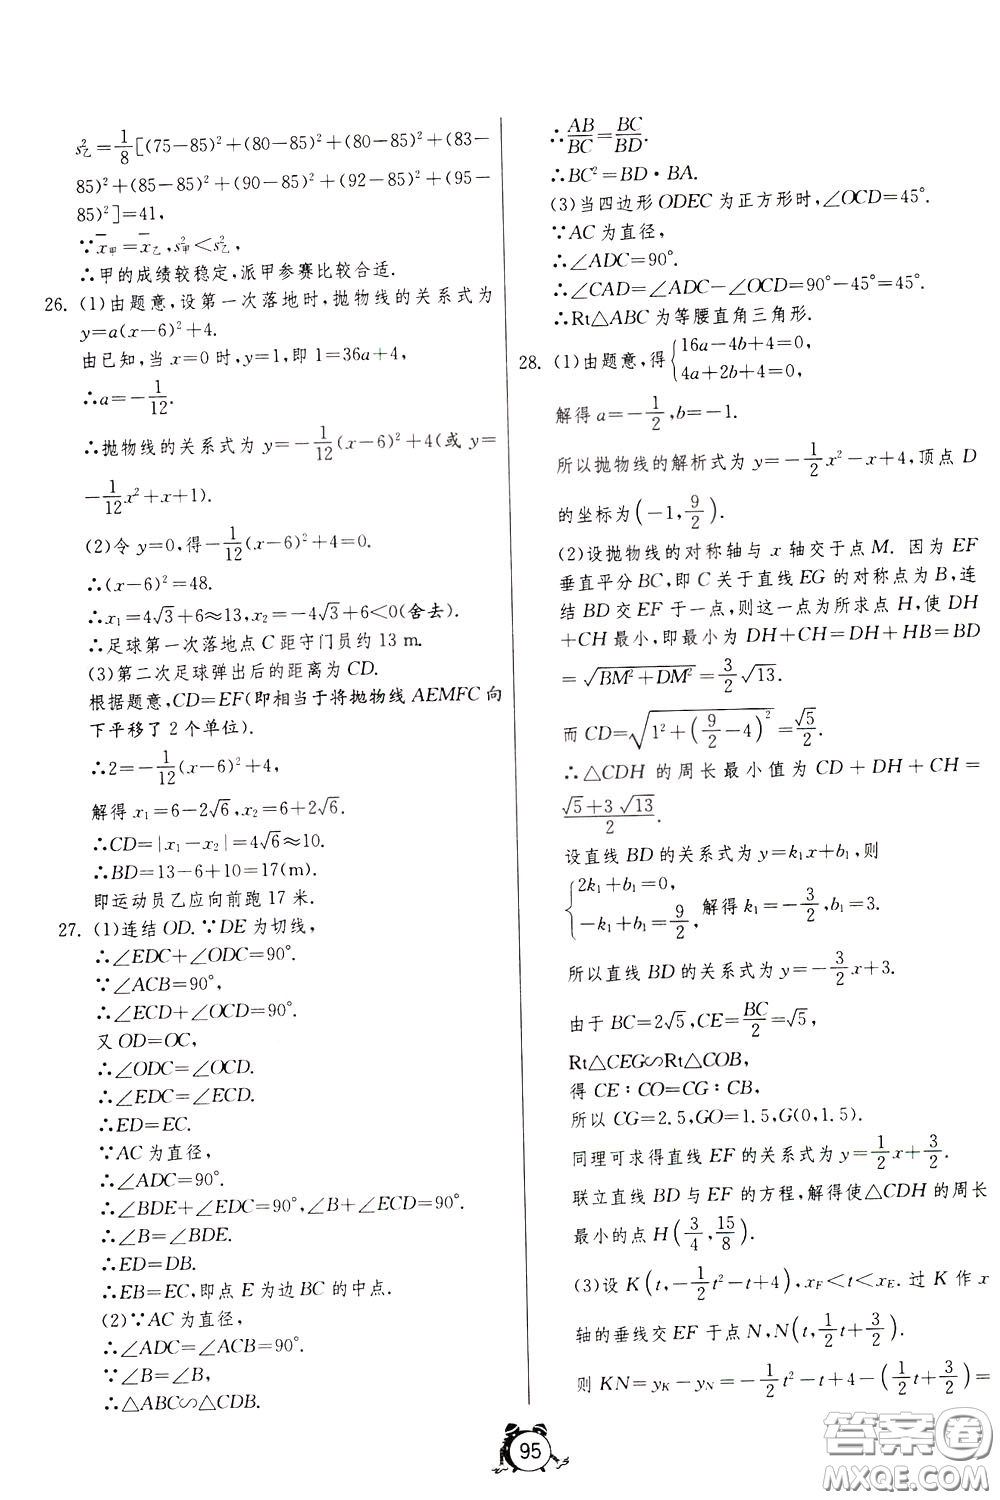 s²乙=1/8[(75-85)²+(80-85)²+(80-85)²+(83-
85)²+(85-85)²+(90-85)²+(92-85)²+(95-
85)²]=41,
∵x̄甲=x̄乙,s²甲<s²乙,
∴甲的成绩较稳定,派甲参赛比较合适.
26. (1)由题意,设第一次落地时,抛物线的关系式为
y=a(x-6)²+4.
由已知,当 x=0 时,y=1,即 1=36a+4,
∴a=-1/12.
∴抛物线的关系式为 y=-1/12(x-6)²+4(或 y=
-1/12x²+x+1).
(2)令 y=0,得-1/12(x-6)²+4=0.
∴(x-6)²=48.
∴x₁=4√3+6≈13,x₂=-4√3+6<0(舍去).
∴足球第一次落地点 C 距守门员约 13 m.
(3)第二次足球弹出后的距离为 CD.
根据题意,CD=EF(即相当于将抛物线 AEMFC 向
下平移了 2 个单位).
∴2=-1/12(x-6)²+4,
解得 x₁=6-2√6,x₂=6+2√6.
∴CD=|x₁-x₂|=4√6≈10.
∴BD=13-6+10=17(m).
即运动员乙应向前跑 17 米.
27. (1)连结 OD.∵DE 为切线,
∴∠EDC+∠ODC=90°.
∵∠ACB=90°,
∴∠ECD+∠OCD=90°.
又 OD=OC,
∴∠ODC=∠OCD.
∴∠EDC=∠ECD.
∴ED=EC.
∵AC 为直径,
∴∠ADC=90°.
∴∠BDE+∠EDC=90°,∠B+∠ECD=90°.
∴∠B=∠BDE.
∴ED=DB.
∴EB=EC,即点 E 为边 BC 的中点.
(2)∵AC 为直径,
∴∠ADC=∠ACB=90°.
∵∠B=∠B,
∴△ABC∽△CDB.
∴AB/BC=BC/BD.
∴BC²=BD·BA.
(3)当四边形 ODEC 为正方形时,∠OCD=45°.
∵AC 为直径,
∴∠ADC=90°.
∴∠CAD=∠ADC-∠OCD=90°-45°=45°.
∴Rt△ABC 为等腰直角三角形.
28. (1)由题意,得{16a-4b+4=0,
4a+2b+4=0,
解得 a=-1/2,b=-1.
所以抛物线的解析式为 y=-1/2x²-x+4,顶点 D
的坐标为(-1,9/2).
(2)设抛物线的对称轴与 x 轴交于点 M. 因为 EF
垂直平分 BC,即 C 关于直线 EG 的对称点为 B,连
结 BD 交 EF 于一点,则这一点为所求点 H,使 DH
+CH 最小,即最小为 DH+CH=DH+HB=BD
=√(BM²+DM²)=3/2√13.
而 CD=√(1²+(9/2-4)²)=√5/2.
∴△CDH 的周长最小值为 CD+DH+CH=
(√5+3√13)/2.
设直线 BD 的关系式为 y=k₁x+b₁,则
{2k₁+b₁=0,
-k₁+b₁=9/2, 解得 k₁=-3/2,b₁=3.
所以直线 BD 的关系式为 y=-3/2x+3.
由于 BC=2√5,CE=BC/2=√5,
Rt△CEG∽Rt△COB,
得 CE∶CO=CG∶CB,
所以 CG=2.5,GO=1.5,G(0,1.5).
同理可求得直线 EF 的关系式为 y=1/2x+3/2.
联立直线 BD 与 EF 的方程,解得使△CDH 的周长
最小的点 H(3/4,15/8).
(3)设 K(t,-1/2t²-t+4),xF<t<xE.过 K 作 x
轴的垂线交 EF 于点 N,N(t,1/2t+3/2).
则 KN=yK-yN=-1/2t²-t+4-(1/2t+3/2)=
95
答案卷
MXQE.COM